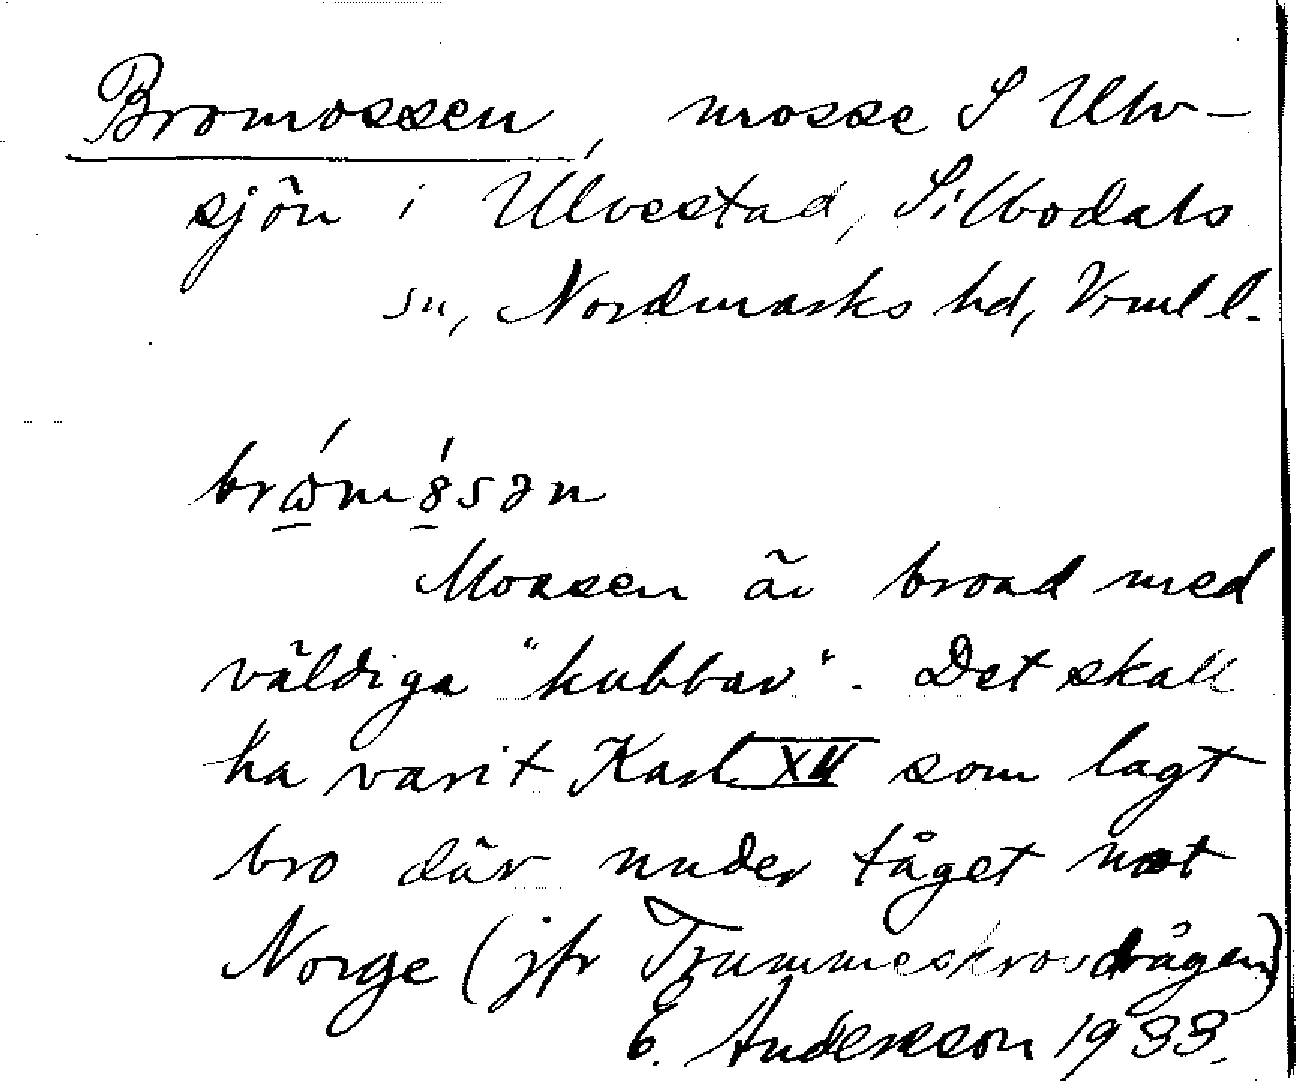 Bromossen, mosse S Ulv-
sjön i Ulvestad, Silbodals
sn, Nordmarks hd, Vrml l.
brώ̱mo̱̍sən
Mossen är broad med
väldiga "kubbar". Det skall
ha varit Karl XII som lagt
bro där under tåget mot
Norge (jfr Trummeskrovdrågen)
E. Andersson 1933.